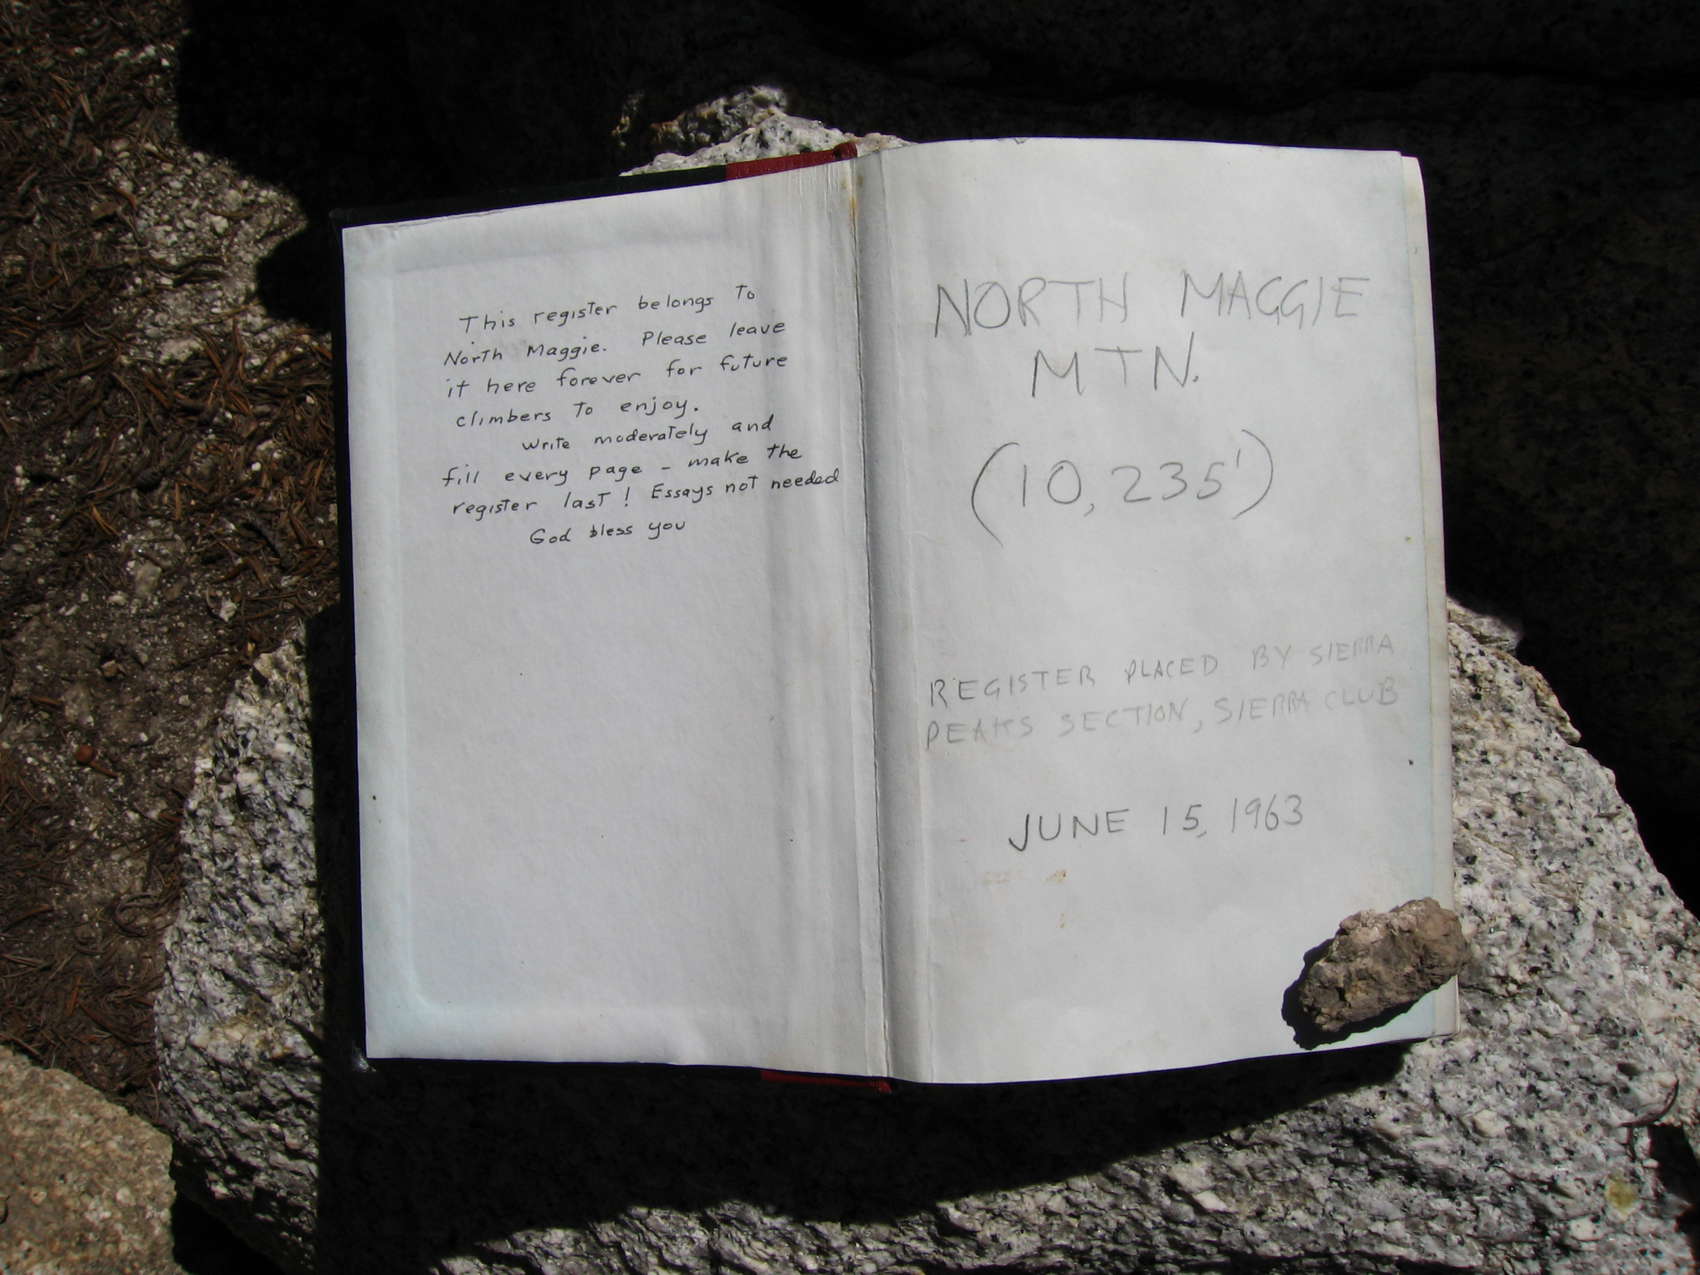 This register belongs to
North Maggie. Please leave
it here forever for future
climbers to enjoy.
Write moderately and
fill every page - make the
register last! Essays not needed
God bless you
NORTH MAGGIE
MTN.
(10,235')
REGISTER PLACED BY SIERRA
PEAKS SECTION, SIERRA CLUB
JUNE 15, 1963